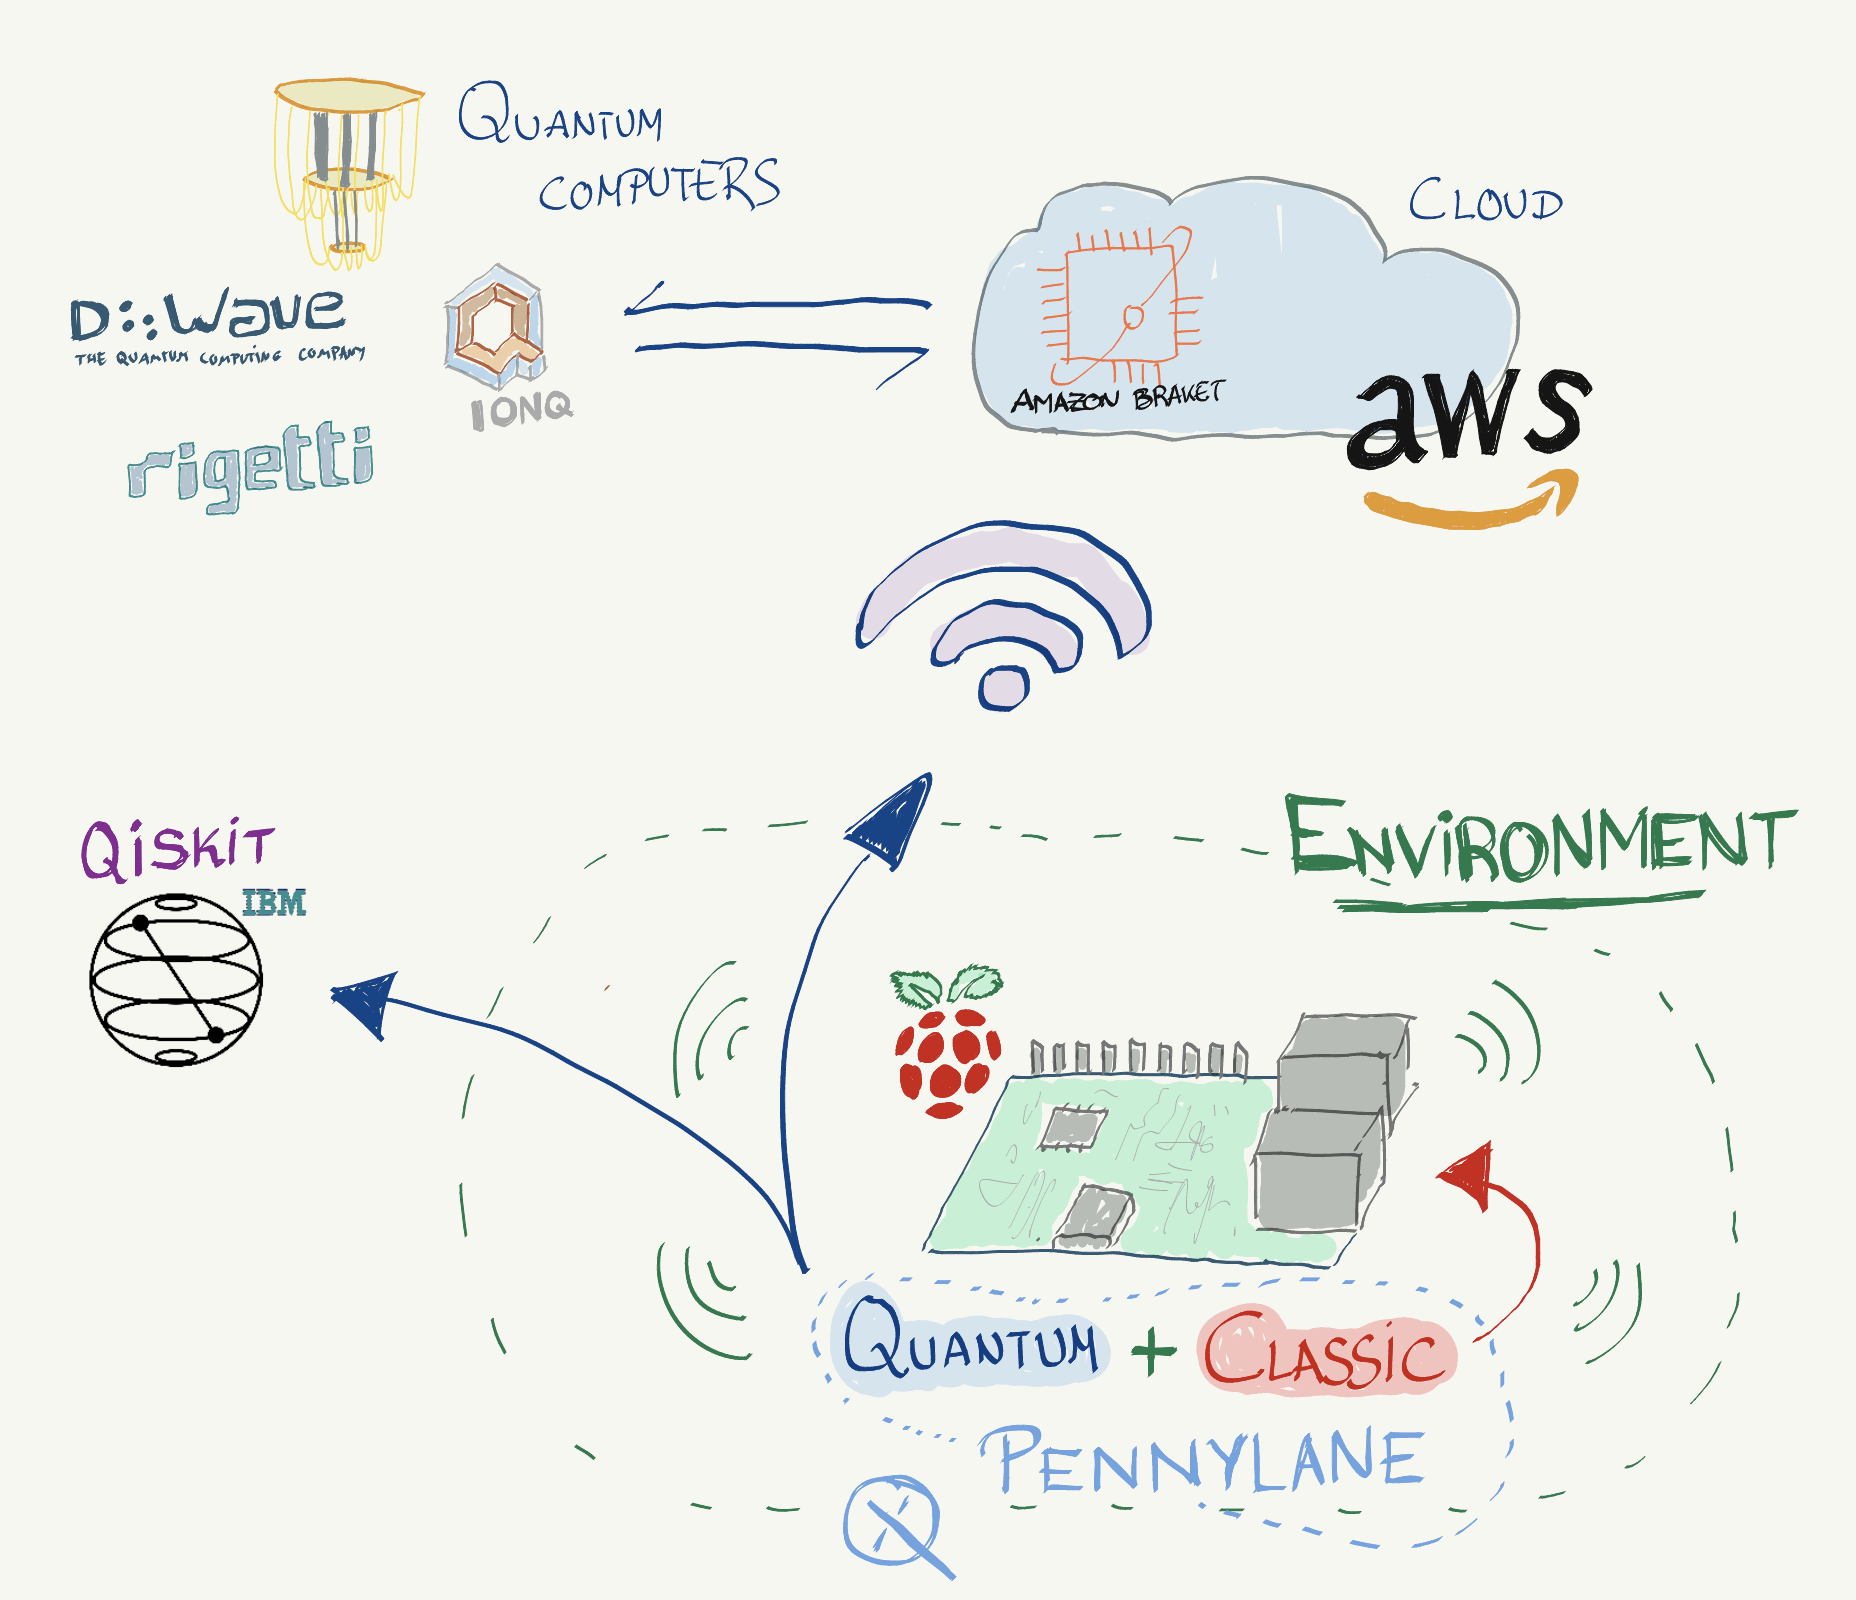 QUANTUM
COMPUTERS
CLOUD
D::Wave
THE QUANTUM COMPUTING COMPANY
IONQ
AMAZON BRAKET
aws
rigetti
ENVIRONMENT
QiSKiT
IBM
QUANTUM + CLASSiC
PENNYLANE